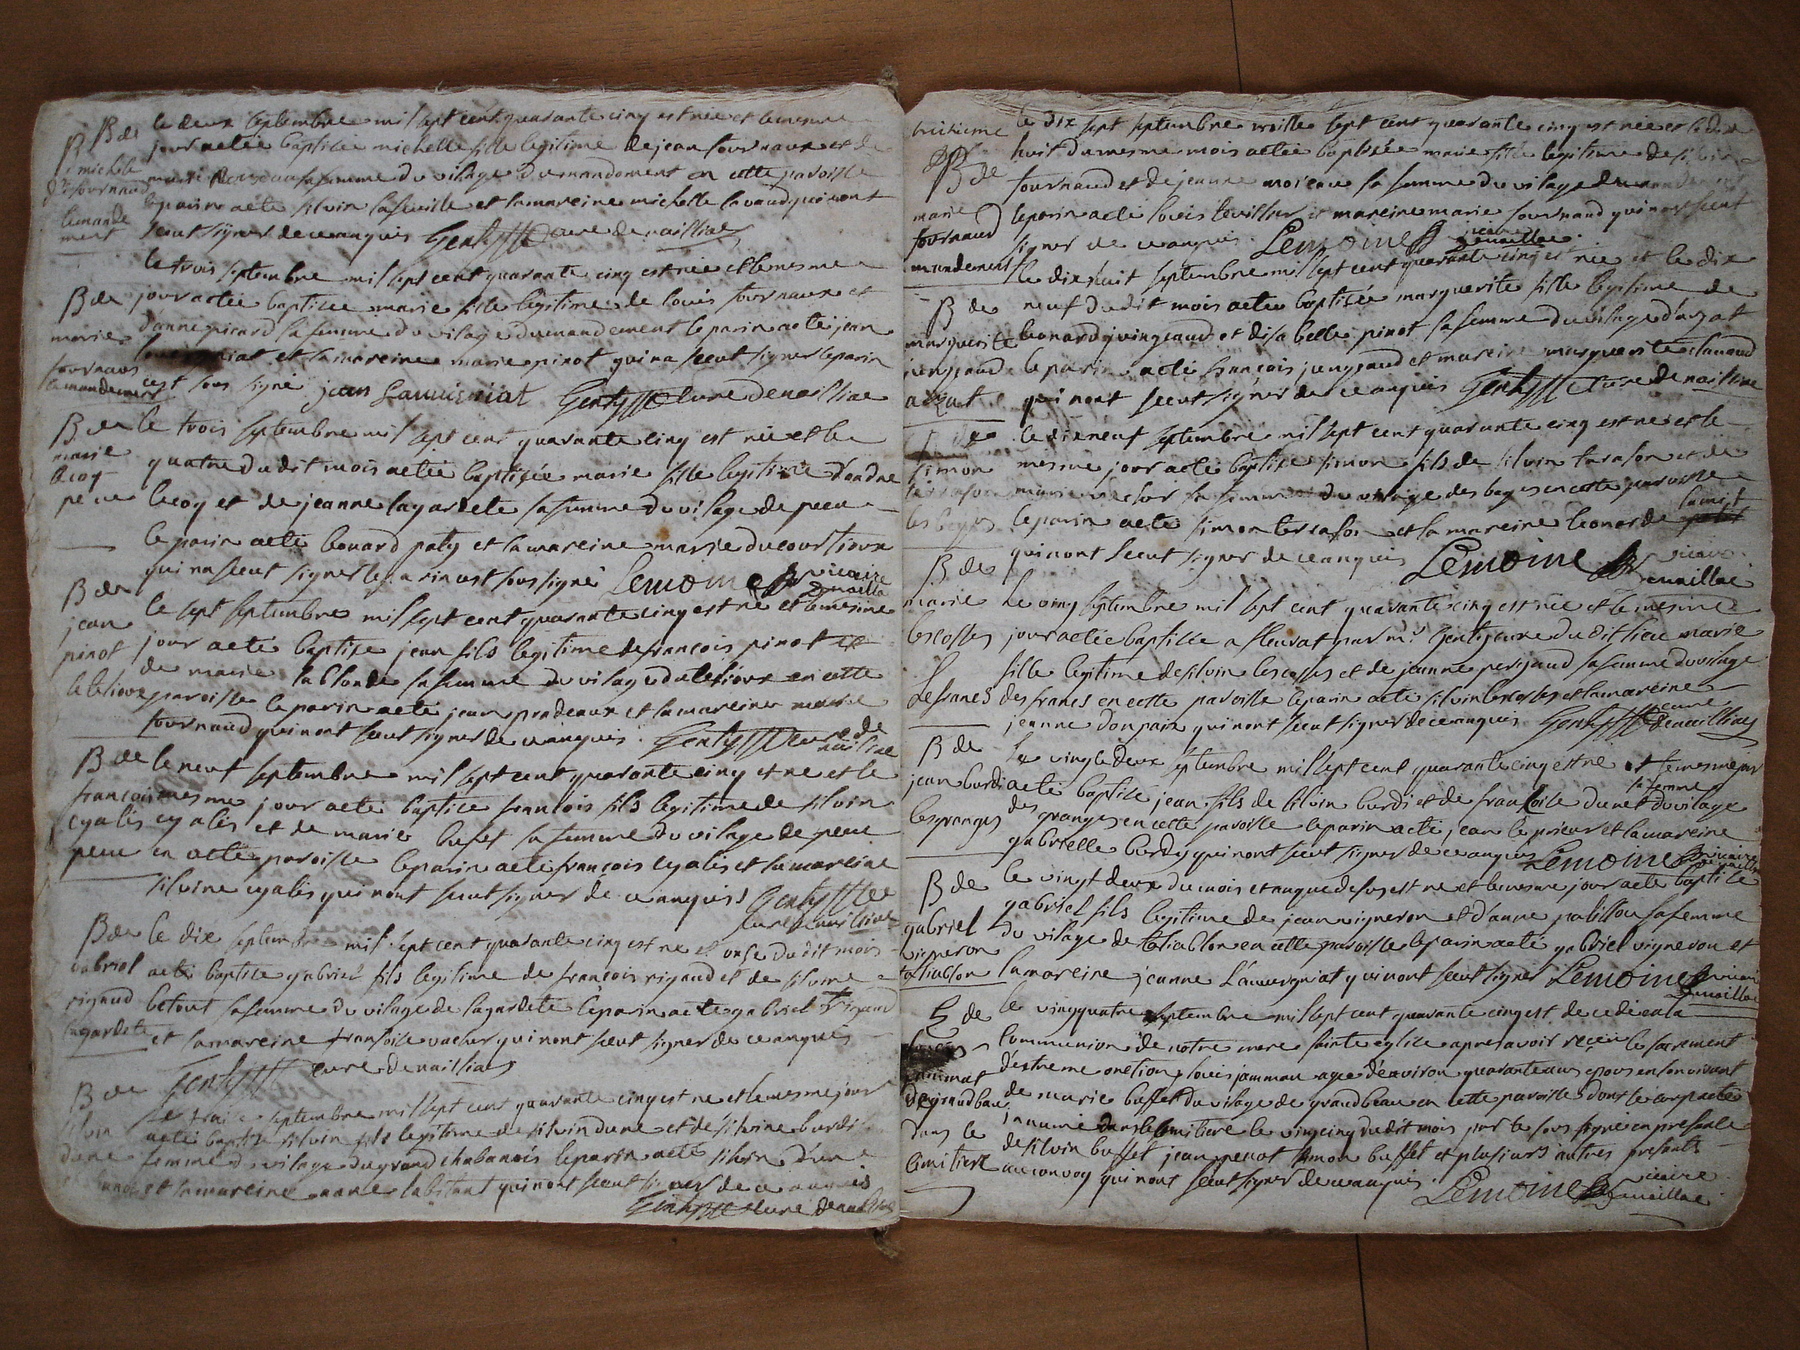 B de
michele
fournaud
lemande
ment
le deux septembre mil sept cent quarante cinq est née et le mesme
jour a etée baptisée michelle fille legitime de jean fournaux et de
marie sa femme du vilage du mandement en cette paroisse
le parin a eté silvin et la mareine michelle lavaud qui n'ont
sceut signer de ce anquis Gentyfff cure de naillac
B de
marie
fournaus
lemandement
le trois septembre mil sept cent quarante cinq est née et le mesme
jour a etée baptisée marie fille legitime de louis fournaux et
d'anne picard sa femme du vilage du mandement le parin a eté jean
et la mareine marie pinot qui na sceut signer le parin
cest sous signé jean Lauvigniat Gentyfff cure de naillac
B de
marie
lecoq
peue
le trois septembre mil sept cent quarante cinq est née et le
quatre du dit mois a etée baptisée marie fille legitime d'andre
lecoq et de jeanne lagardete sa femme du vilage de peue
le parin a eté leonard paty et la mareine marie ducourtioux
qui na sceut signer le parin est sous signé Lemoine vicaire
de naillac
B de
jean
pinot
le sept septembre mil sept cent quarante cinq est né et le mesme
jour a eté baptisé jean fils legitime de françois pinot et
de marie lablonde sa femme du vilage en cette
paroisse le parin a eté jean pradeaux et la mareine marie
fournaud qui n'ont sceut signer de ce anquis Gentyfff cure de
naillac
B de
françois
cyalis
peue
le neuf septembre mil sept cent quarante cinq est né et le
mesme jour a eté baptisé françois fils legitime de silvin
cyalis et de marie bufet sa femme du vilage de peue
en cette paroisse le parin a eté françois cyalis et la mareine
silvine cyalis qui n'ont sceut signer de ce anquis Gentyfff
cure de naillac
B de
gabriel
rigaud
lagardete
le dix septembre mil sept cent quarante cinq est né et onse du dit mois
a eté baptisé gabriel fils legitime de françois rigaud et de silvine
betout sa femme du vilage de lagardete le parin a eté gabriel rigaud
et la mareine fransoise vacher qui n'ont sceut signer de ce anquis
Gentyfff cure de naillac
B de
silvin
dune
le traise septembre mil sept cent quarante cinq est né et le mesme jour
a eté baptisé silvin fils legitime de silvin dune et de silvine burdi
femme du vilage du grand chabanois le parin a eté silvin dune
et la mareine anne labstant qui n'ont sceut signer de ce anquis
Gentyfff cure de naillac
huitieme
B de
marie
fournaud
mandement
le dix sept septembre mille sept cent quarante cinq est née et le dix
huit du mesme mois a etée baptisée marie fille legitime de silvin
fournaud et de jeanne moreau sa femme du vilage du mandement
le parin a eté louis et mareine marie fournaud qui n'ont sceut
signer de ce anquis Lemoine vicaire
de naillac
B de
marguerite
jungeaud
arzat
le dix huit septembre mil sept cent quarante cinq est née et le dix
neuf du dit mois a etée baptisée marguerite fille legitime de
leonard jungeaud et d'isabelle pinot sa femme du vilage d'arzat
le parin a eté françois jungeaud et mareine marguerite lavaud
qui n'ont sceut signer de ce anquis Gentyfff cure de naillac
B de
simon
terrason
les beges
le dix neuf septembre mil sept cent quarante cinq est né et le
mesme jour a eté baptisé simon fils de silvin tarason et de
marie sa femme du vilage des beges en cette paroisse
le parin a eté simon terrason et la mareine leonarde
qui n'ont sceut signer de ce anquis Lemoine vicaire
de naillac
B de
marie
lescosses
les francs
le septembre mil sept cent quarante cinq est née et le mesme
jour a etée baptisée a fleurat par mr. Genty cure du dit lieu marie
fille legitime de silvin lescosses et de jeanne perijaud sa femme du vilage
des francs en cette paroisse le parin a eté silvin lescosses et la mareine
jeanne donpaix qui n'ont sceut signer de ce anquis Gentyfff cure
de naillac
B de
jean burdi
les granges
le vingt deux septembre mil sept cent quarante cinq est né et le mesme jour
a eté baptisé jean fils de silvin burdi et de fransoise dune sa femme du vilage
des granges en cette paroisse le parin a eté jean le prieur et la mareine
gabrielle burdy qui n'ont sceut signer de ce anquis Lemoine vicaire
de naillac
B de
gabriel
vigneron
taliablon
le vingt deux du mois et an que desus est né et le mesme jour a eté baptisé
gabriel fils legitime de jean vigneron et d'anne pabillou sa femme
du vilage de taliablon en cette paroisse le parin a eté gabriel vigneron et
la mareine jeanne Lauvergniat qui n'ont sceut signer Lemoine vicaire
de naillac
S de
jammat
de grandbau
dans le
cimitiere
le vingquatre septembre mil sept cent quarante cinq est decedé en la
communion de notre mere sainte eglise apres avoir reçeu le sacrement
d'extreme onction louis jammau agé d'environ quarante ans epous en son vivant
de marie buffet du vilage de grandbeau en cette paroisse dont le corp a eté
innumé dans le cimitiere le vingcinq du dit mois par le sous signé en presance
de silvin buffet jean penot simon buffet et plusieurs autres presants
au convoy qui n'ont sceut signer de ce anquis
Lemoine vicaire
de naillac